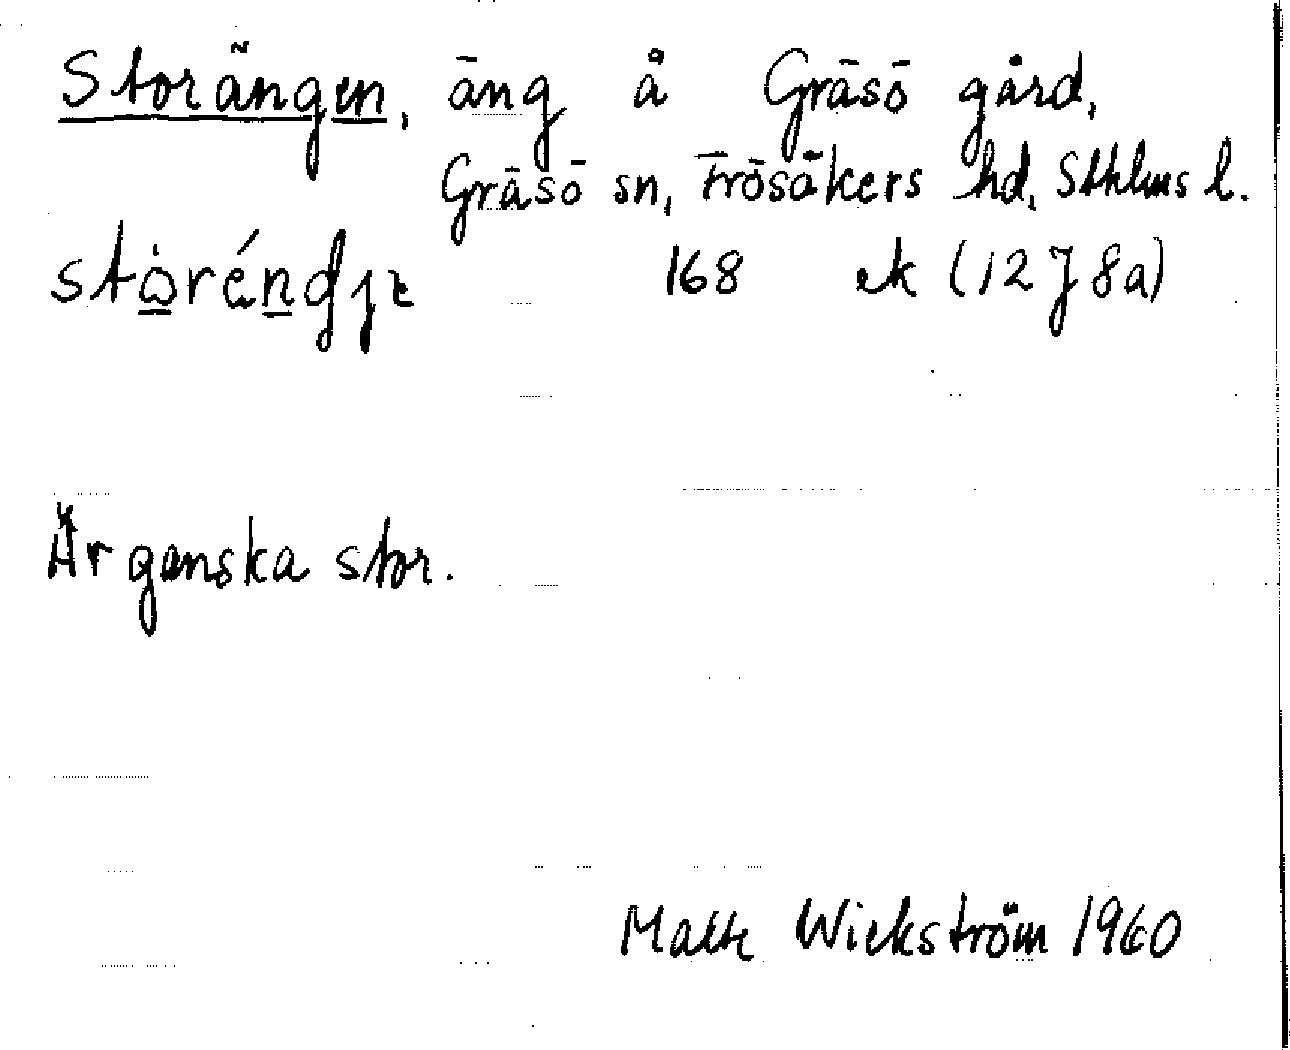 Storängen, äng å Gräsö gård,
Gräsö sn, Frösåkers hd, Sthlms l.
168 ek (12 J 8a)
Är ganska stor.
Malte Wickström 1960